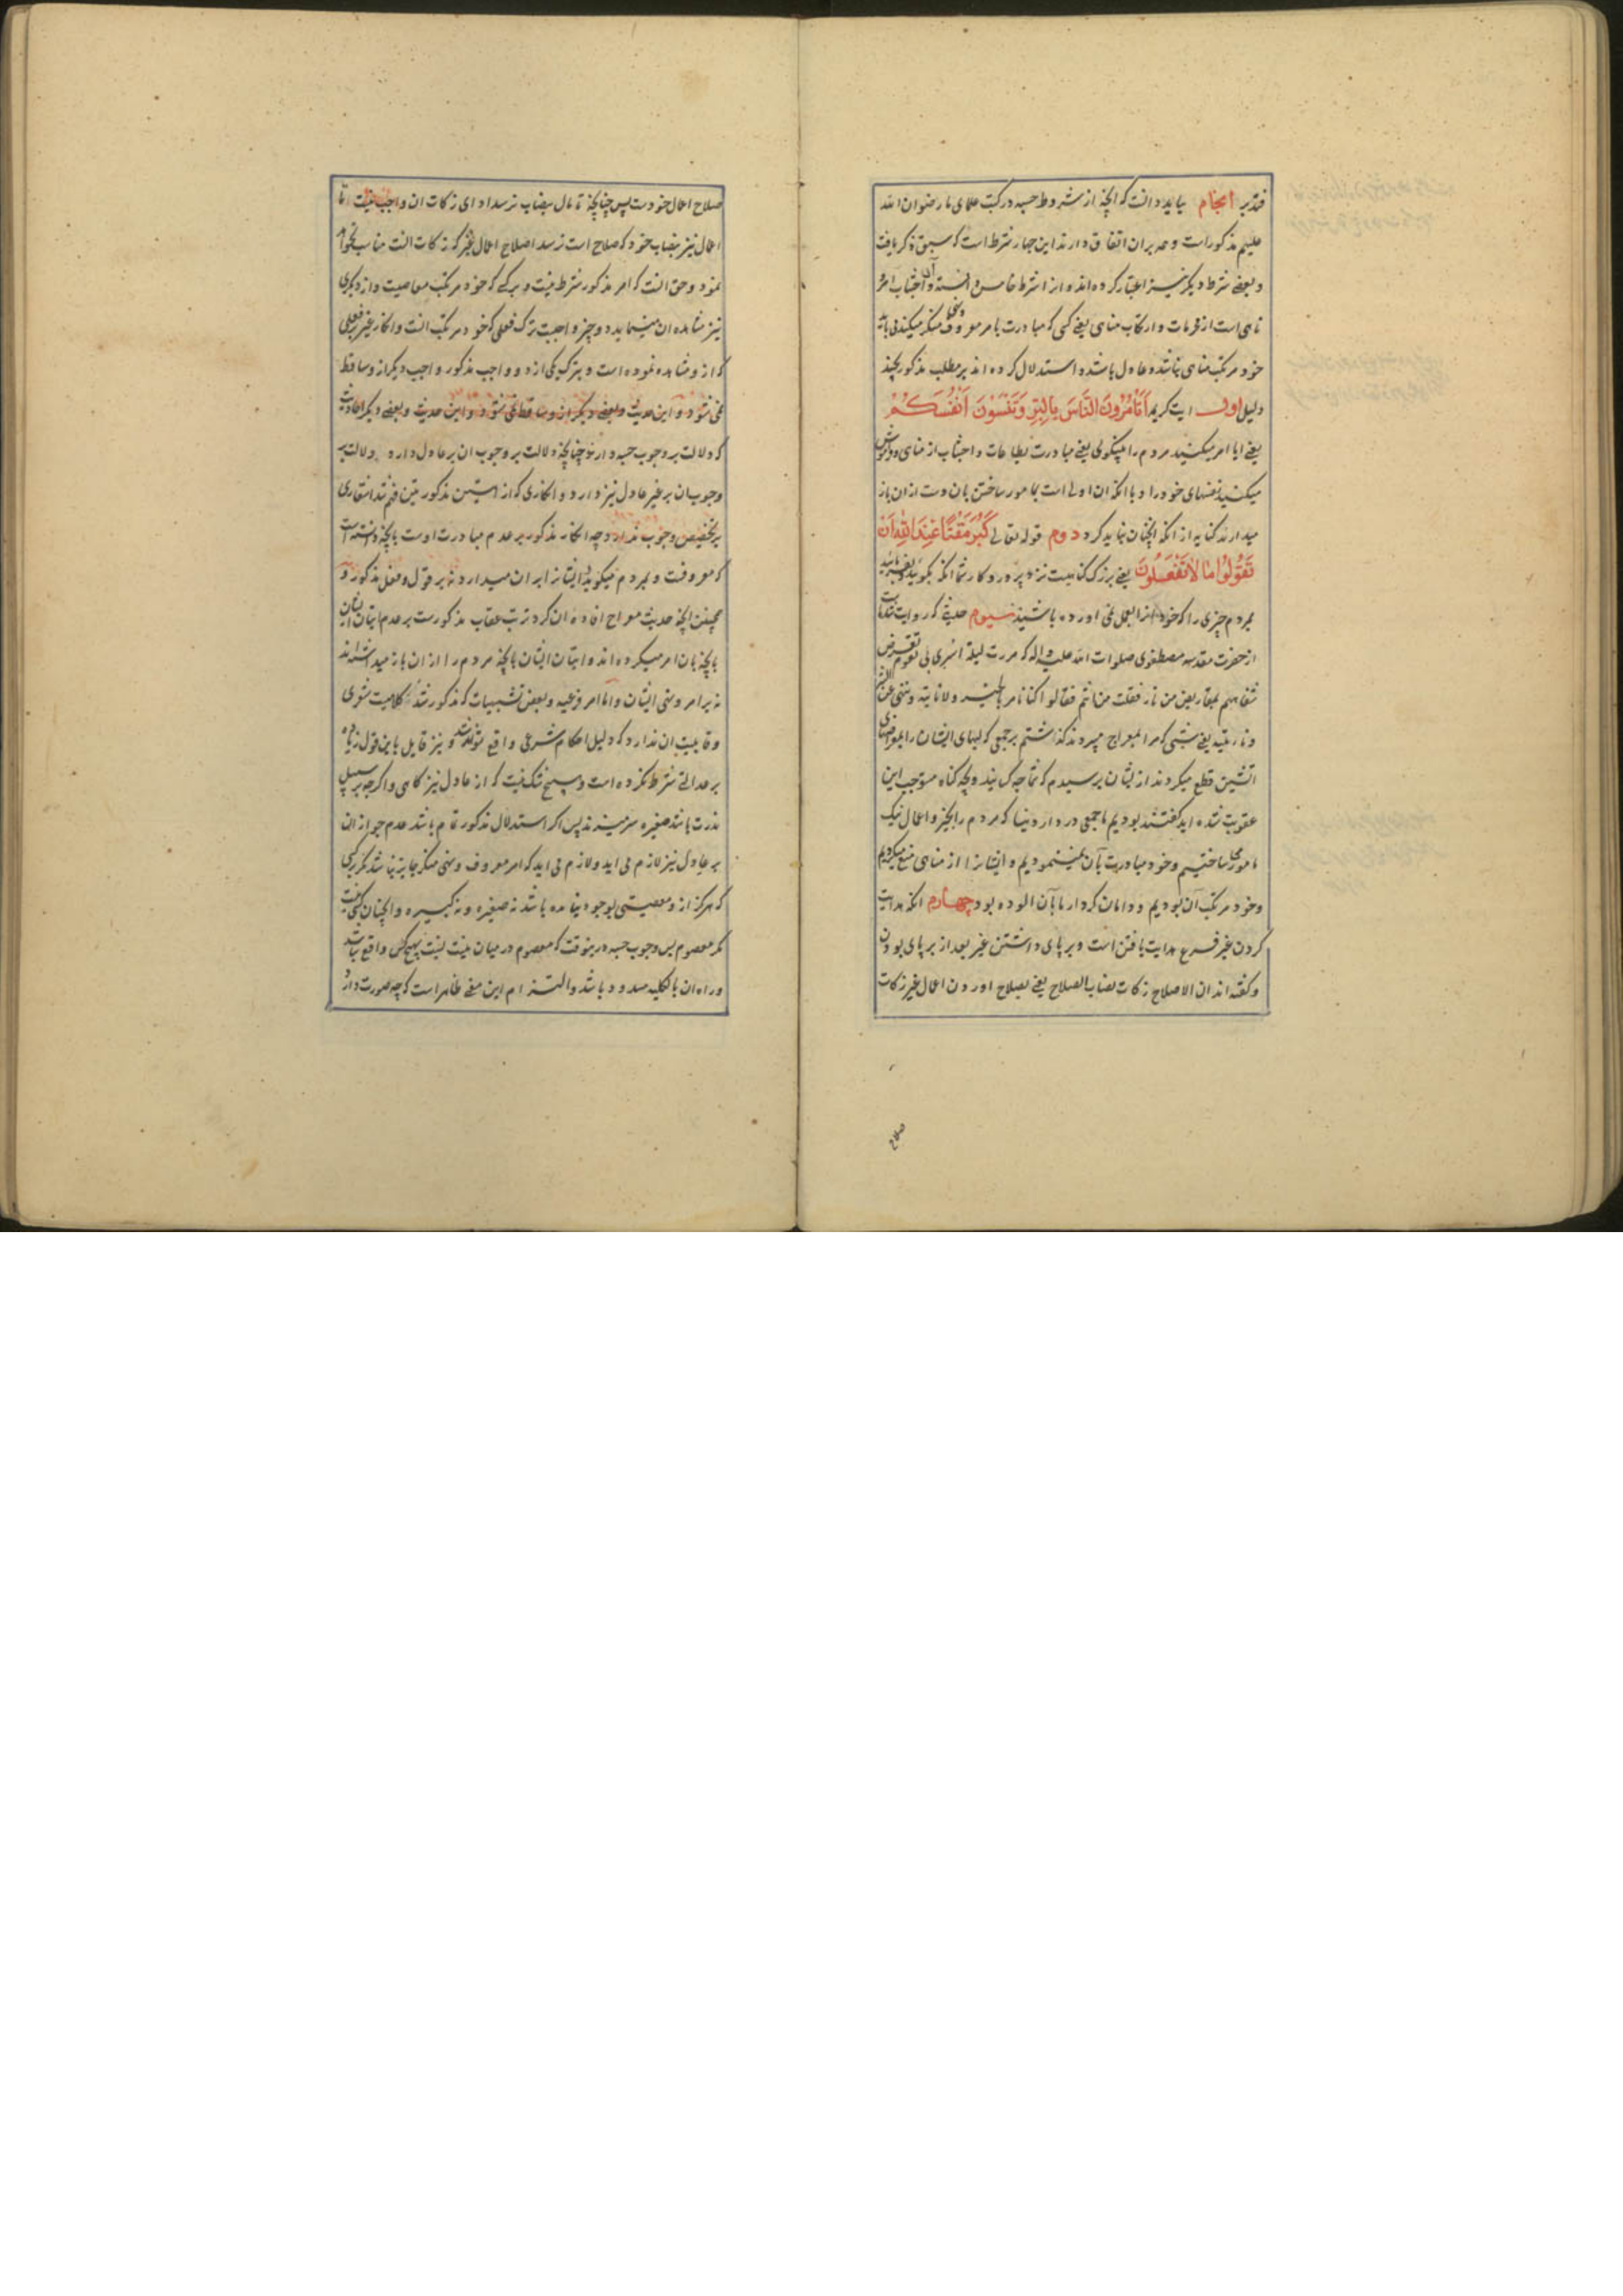 فتدبر انجام بباید دانست که آنچه از شروط حسبه در کتب علمای ما رضوان الله
علیهم مذکور است و همه بران اتفاق دارند این چهار شرط است که سبق ذکر یافت
و بعضی شرط دیگر نیز اعتبار کرده‌اند و از اشرط خامس دانسته و آن اجتناب امر و
ناهی است از محرمات و ارتکاب مناهی یعنی کسی که مبادرت بامر معروف و نهی منکر میکند می باید
خود مرتکب مناهی نباشد و عادل باشد و استدلال کرده اند بر مطلب مذکور بچند
دلیل اول ایت کریمه اَتَأمُرُونَ النَّاسَ بِالبِرِّ وَتَنسَونَ اَنفُسَكُم
یعنی ایا امر میکنید مردم را بنیکوئی یعنی مبادرت بطاعات و اجتناب از مناهی و فراموش
میکنید نفسهای خود را و با انکه ان اولی است بمامور ساختن بان و دست ازان باز
میدارند کنایه از انکه انچنان نباید کرد دوم قوله تعالی كَبُرَ مَقتًا عِندَ اللهِ اَن
تَقُولُوا مَا لاَ تَفعَلُونَ یعنی بزرک کناهیست نزد پروردکار شما انکه بکویید
بمردم چیزی را که خود انرا بعمل نمی اورده باشید سیوم حدیثی که روایت شده است
از حضرت مقدسه مصطفوی صلوات الله علیه و اله که مررت لیلة اسری بی بقوم تقرض
شفاههم بمقاریض من نار فقلت من انتم فقالوا کنا نامر بالخیر و لا ناتیه و ننهی عن الشر
و ناتیه یعنی شبی که مرا بمعراج میبردند کذاشتم بر جمعی که لبهای ایشان را بمقراضهای
اتشین قطع میکردند از یشان پرسیدم که شما چه کسانید و بچه کناه مستوجب این
عقوبت شده اید کفتند بودیم ما جمعی در دار دنیا که مردم را بخیر و اعمال نیک
مامور می ساختیم و خود مبادرت بآن نمینمودیم و ایشانرا از مناهی منع میکردیم
و خود مرتکب آن بودیم و دامان کردار ما بآن الوده بود چهارم انکه هدایت
کردن غیر فرع هدایت یافتن است و بر پای داشتن غیر بعد از بر پای بودن
و کفته اند ان الاصلاح زکات نصاب الصلاح یعنی بصلاح اوردن اعمال غیر زکات
صلاح
صلاح اعمال خودست پس چنانچه تا مال بنصاب نرسد ادای زکات ان واجب نیست تا
اعمال نیز بنصاب خود که صلاح است نرسد اصلاح اعمال غیر که زکات انست مناسب نخواهد
نمود و حق انست که امر مذکور شرط نیست و بر کسی که خود مرتکب معاصیست و از دیگری
نیز مشاهده ان مینماید دو چیز واجبست ترک فعلی که خود مرتکب انست و انکار غیر بر فعلی
که ازو مشاهده نموده است و بترک یکی از دو واجب مذکور واجب دیکر ازو ساقط
نمی شود و این حدیث و بعضی دیکر احادیث
که دلالت بر وجوب حسبه دارند چنانچه دلالت بر وجوب ان بر عادل دارد دلالت بر
وجوب ان بر غیر عادل نیز دارد و انکاری که از ایتین مذکورتین فهم شد اشعاری
بر تخصیص وجوب ندارد چه انکار مذکور بر عدم مبادرت اوست بانچه دانسته است
که معروفست و بمردم میکوید و ایشانرا بران میدارد نه بر قول و فعل مذکور و
همچنین انچه حدیث معراج افاده ان کرد ترتب عقاب مذکورست بر عدم اتیان ایشان
بانچه بان امر میکرده اند و اتیان ایشان بانچه مردم را از ان باز میداشته اند
نه بر امر و نهی ایشان و اما امر فرعیه و بعض تشبیهات که مذکور شد کلامیست شعری
و قابلیت ان ندارد که دلیل احکام شرعی واقع تواند شد و نیز قایل باین قول زیاده
بر عدالت شرط نکرده است و هیچ شک نیست که از عادل نیز کاهی و اکرچه بر سبیل
ندرت باشد صغیره سر میزند پس اکر استدلال مذکور تمام باشد عدم جواز ان
بر عادل نیز لازم می اید و لازم می اید که امر معروف و نهی منکر جایز نباشد مکر بر کسی
که هرکز ازو معصیتی بوجود نیامده باشد نه صغیره و نه کبیره و انچنان کسی نیست
مکر معصوم پس وجوب حسبه در ینوقت که معصوم در میان نیست نسبت بهیچ کس واقع نباشد
و راه ان بالکلیه مسدود باشد و التزام این معنی ظاهر است که چه صورت دارد